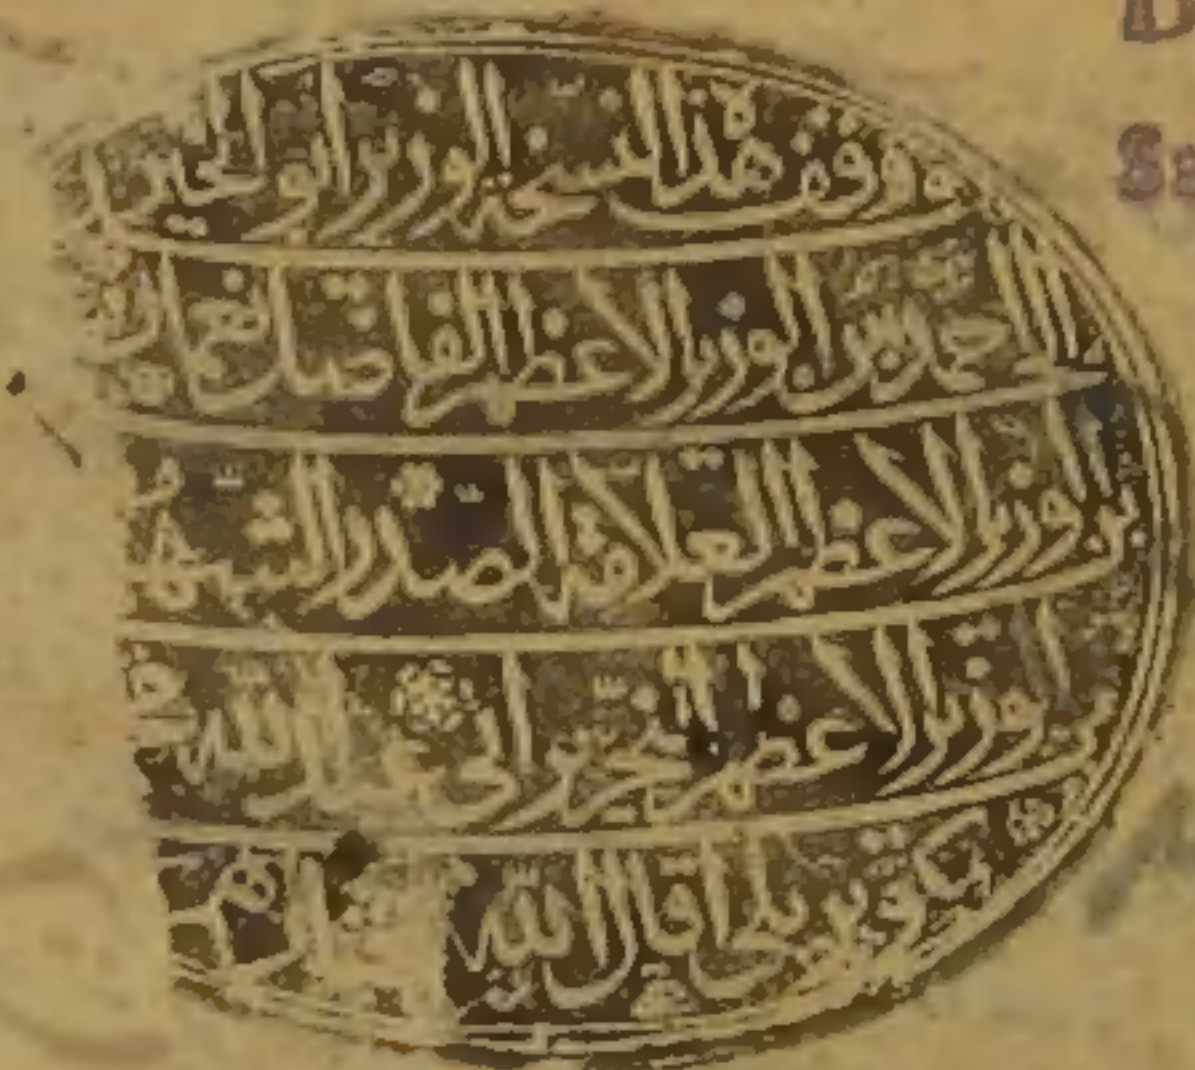 وقف هذه النسخة الوزير ابو الخير
الحاج احمد بن الوزير الاعظم الفاضل نعمان
بن الوزير الاعظم العلامة الصدر الشهيد
بن الوزير الاعظم الخير ابي عبد الله
كوپريلي اقال الله